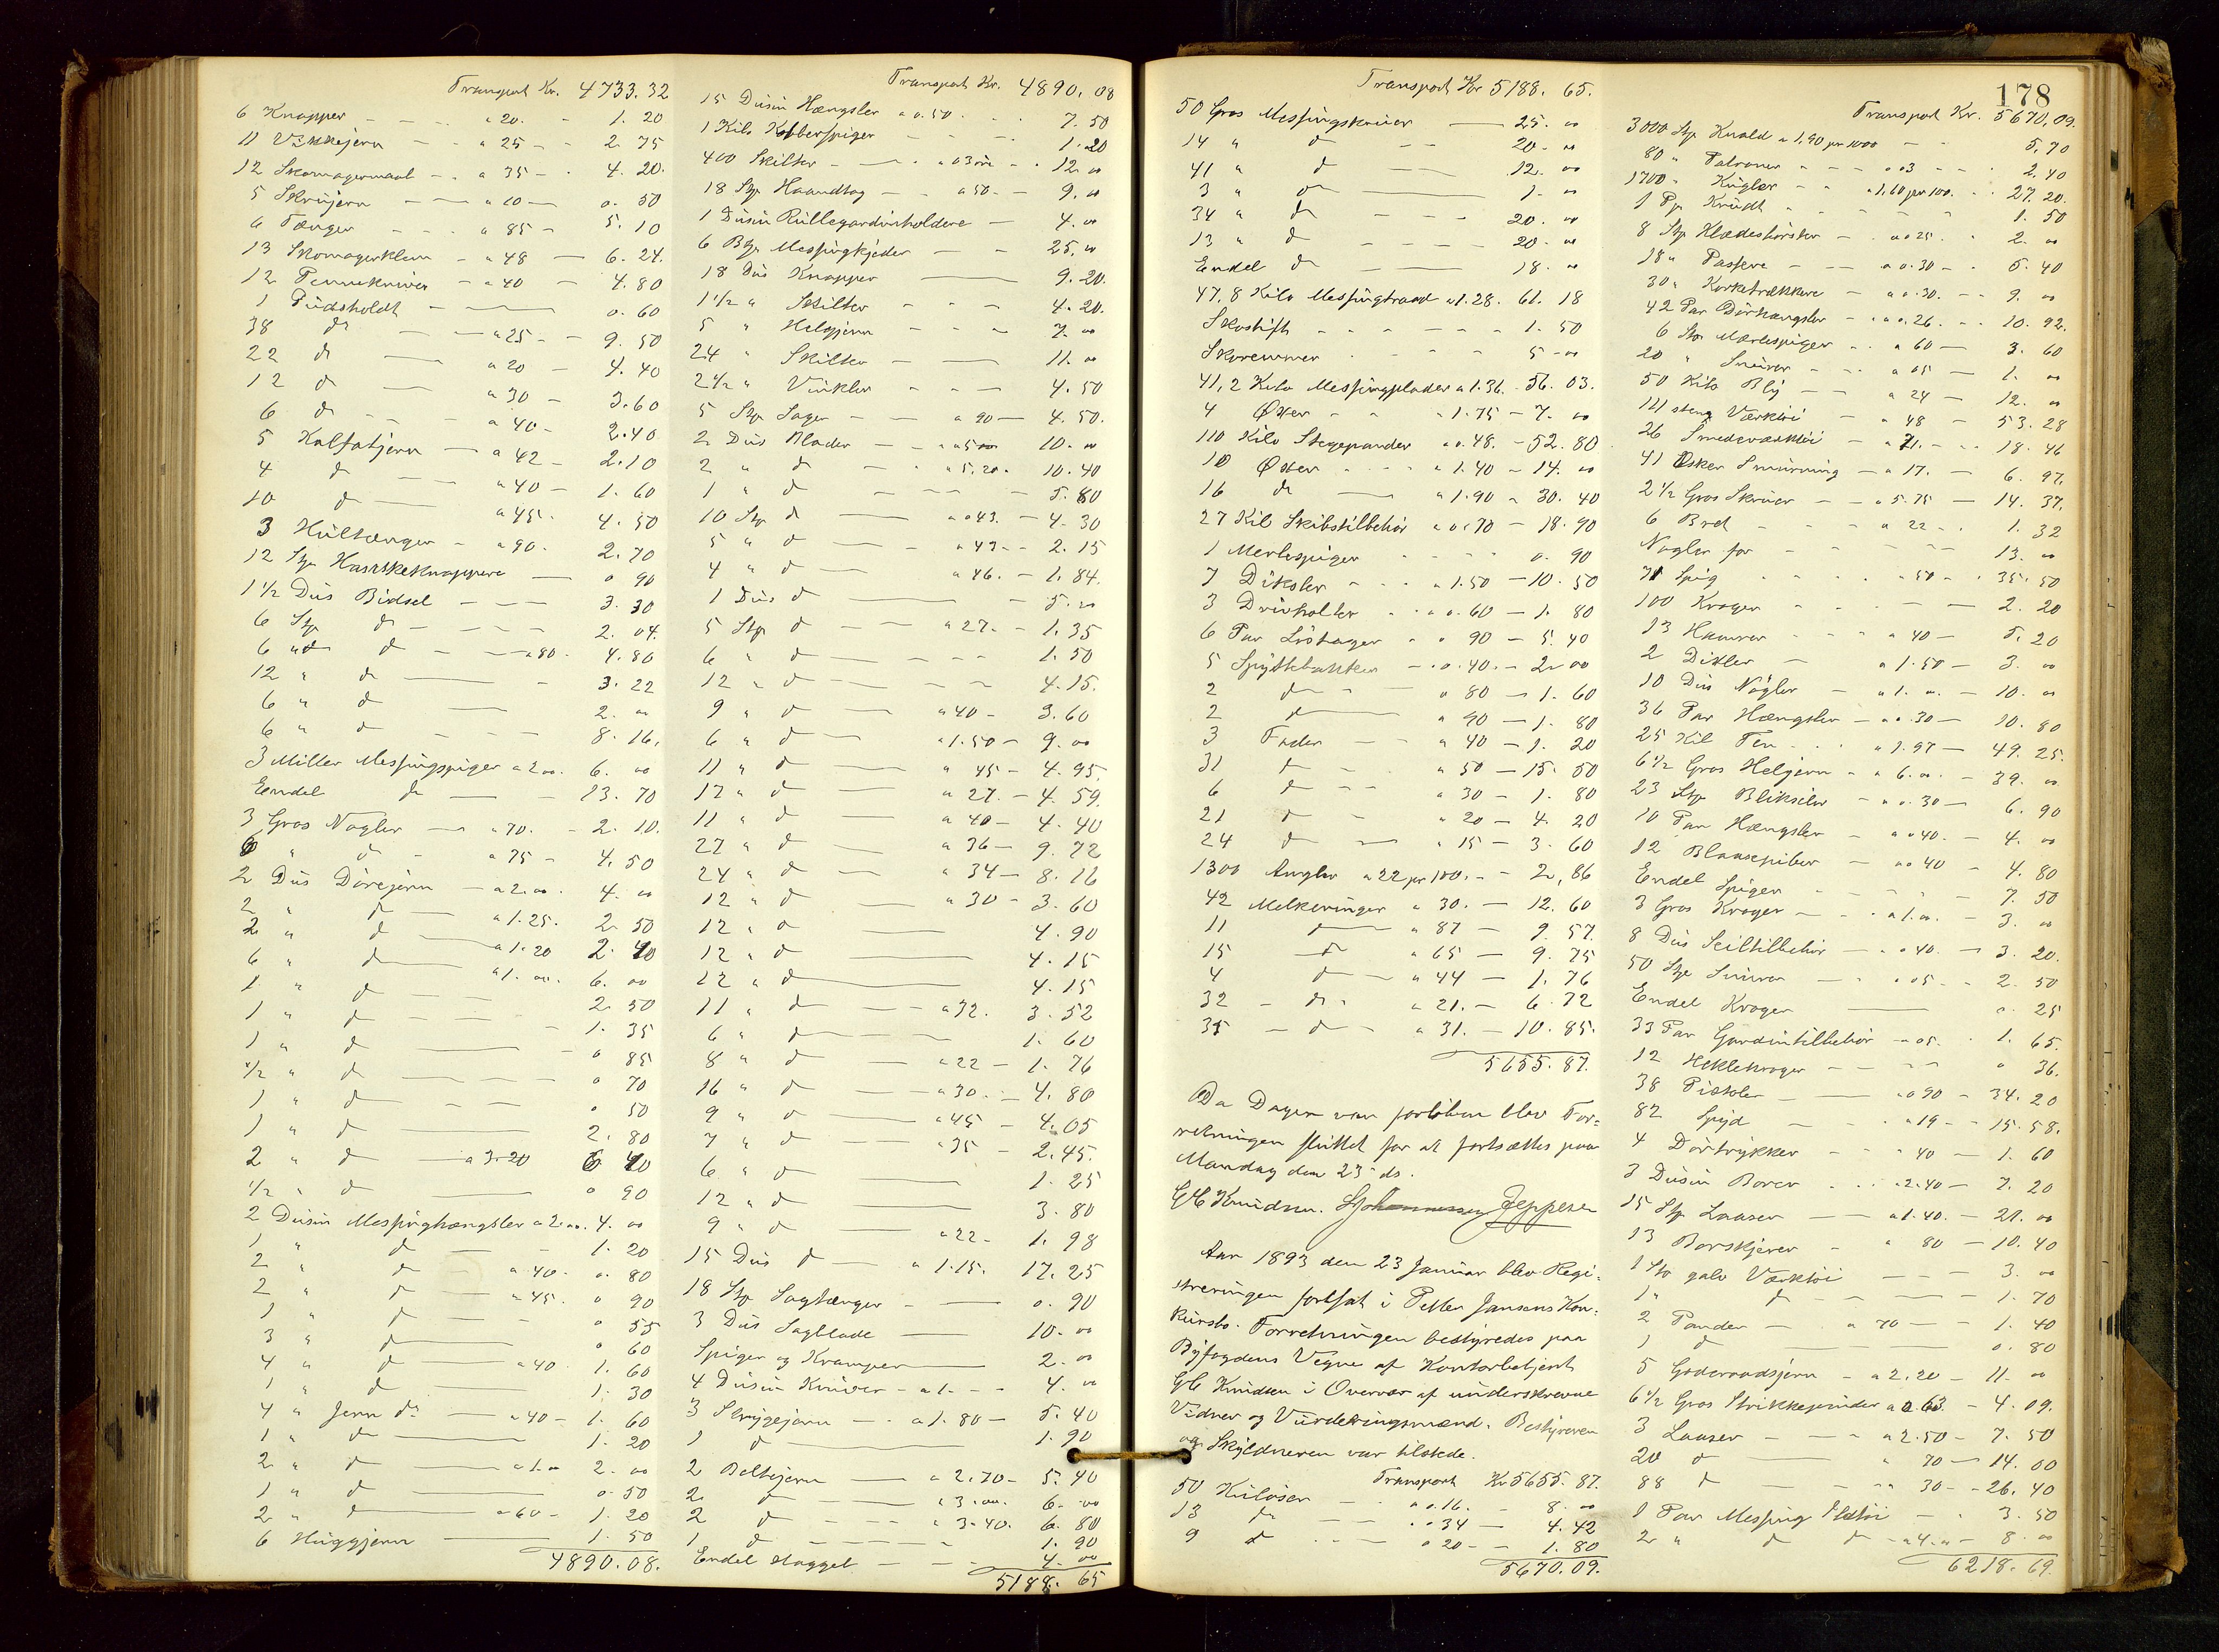 Transport Kr. 4733.32
6 Knapper - - - a 20. - 1. 20
11 Virkkejern - - a 25 - - 2. 75
12 Skomagermaal - - a 35 - - 4. 20.
5 Skrujern - - a 10 - 0. 50
6 Tænger - - - a 85 - 5. 10
13 Skomagerklem - a 48 - 6. 24.
12 Pennekniver - a 40 - 4. 80
1 Pudsholdt - 0. 60
38 do - a 25 - - 9. 50
22 do - a 20 - 4. 40
12 do - a 30 - 3. 60
6 do - - a 40 - 2. 40
5 Kalfatjern - a 42 - 2. 10
4 do - - a 40 - 1. 60
10 do - a 45. 4. 50
3 Hultænger - a 90. 2. 70
12 Stp Hanskeknappere - 0 90
1 1/2 Dus Bidsel - - - 3. 30
6 Stp do - - - - 2. 04.
6 do - - a 80. 4. 80
12 " do - - 3. 22
6 " do - 2. 00
6 " do - - - 8. 16.
3 Miller Messingspiger a 2.00. 6. 00
Endel do - - 13. 70
3 Gros Nøgler - a 70. - 2. 10.
6 " do - a 75 - 4. 50
2 Dus Dørejern - a 2.00. 4. 00
2 " do - a 1.25. 2. 50
2 " do - a 1.20 2. 40
6 " do - a 1.00. 6. 00
1 " do - - - 2. 50
1 " do - - - - 1. 35
1 " do - 0 85
1/2 " do - - - 0 70
1 " do - - 0 50
1 " do - 2. 80
2 " do - a 3.20 6 40
1/2 " do - 0 90
2 Dusin Messinghængsler a 2.00. 4. 00
1 " do - - 1. 20
2 " do - a 40. 0. 80
2 " do - a 45. 0 90
1 " do - - 0 55
3 " do - 0 60
4 " do - a 40. 1. 60
1 " do - 1. 30
4 " Jern do - a 40 - 1. 60
1 " do - 1. 20
2 " do - a 1.00 2. 00
1 " do - 0. 50
2 " do - a 60 - 1. 20
6 Huggjern - 1. 50
4890.08.
Transport Kr. 4890.08
15 Dusin Hængsler a 0.50. . . 7. 50
1 Kilo Kobberspiger - - - 1. 20
400 Skilter - - a 03 øre - . 12. 00
18 Stp Haandtag - - a 50 - - 9. 00
1 Dusin Rullegardinholdere - 4. 00
6 Btp Messingkjeder - - 25. 00
18 Dus Knapper - 9. 20.
1 1/2 " Skilter - - - 4. 20.
5 " Helgjern - - - 7. 00
24 " Skilter - - 11. 00
2 1/2 " Vinkler - - - 4. 50
5 Stp Sager - - a 90 - 4. 50.
2 Dus Blader - - a 5 00 10. 00
2 " do - - a 5.20. 10. 40
1 " do - - - - 5. 80
10 Stp do - a 043. - 4. 30
5 " do - - a 43 - - 2. 15
4 " do - a 46. - 1. 84.
1 Dus do - - 5. 00
5 Stp do - - a 27. - 1. 35
6 " do - - - - 1. 50
12 " do - - - 4. 15.
9 " do - a 40 - 3. 60
6 " do - a 1.50 - 9. 00
11 " do - a 45 - 4. 95.
17 " do - a 27. - 4. 59.
11 " do - a 40 - 4. 40
27 " do - a 36 - 9. 72
24 " do - a 34 - 8. 16
12 " do - a 30 - 3. 60
12 " do - 4. 90
12 " do - 4. 15
12 " do - 4. 15
11 " do - a 32. 3. 52
6 " do - 1. 60
8 " do - a 22 - 1. 76
16 " do - a 30. - 4. 80
9 " do - a 45 - 4. 05
7 " do - a 35 - 2. 45.
6 " do 1. 25
12 " do - 3. 80
9 " do - a 22 - 1. 98
15 Dus do - a 1.15. 17. 25
18 Stp Sagtænger - - 0. 90
3 Dus Sagblade - 10. 00
Spiger og Kramper - 2. 00
4 Dusin Kniver - a 1. - - 4. 00
3 Strygejern - - a 1.80 - 5. 40
1 do - 1. 90
2 Boltejern - a 2.70 - 5. 40
2 do - a 3.00. 6. 00
2 do - - - a 3.40. 6. 80
1 do - - - - 1. 90
Endel Hagget - - - 4. 00
5188. 65
Transport Kr 5188. 65.
50 Gros Messingskruer - 25. 00
14 " do - - 20. 00
41 " do - - 12. 00
3 " do - 1. 00
34 " do - - - 20. 00
13 " do - - - - 20. 00
Endel do - - 18. 00
47,8 Kilo Messingtraad a 1.28. 61. 18
Skostift - - - - - - 1. 50
Skoremmer - - - 5. 00
41,2 Kilo Messingplader a 1.36. - 56. 03.
4 Øxer - - - 1.75 - 7. 00
110 Kilo Stegepander a 0.48. - 52. 80
10 Øxer - - - a 1.40 - 14. 00
16 do - a 1.90 - 30. 40
27 Kil Skibstilbehør a 0.70 - 18. 90
1 Merlespiger - - - - 0. 90
7 Diksler - - - a 1.50 - 10. 50
3 Drivholter - - a 0.60 - 1. 80
6 Par Løstager - a 90 - 5. 40
5 Spyttebakker - a 0.40. - 2. 00
2 do - - a 80 - 1. 60
2 do - a 90 - 1. 80
3 Fader - - a 40 - 1. 20
31 do - - a 50 - 15. 50
6 do - - a 30 - 1. 80
21 do - a 20 - 4. 20
24 do - a 15 - 3. 60
1300 Angler a 22 pr 100. - - 2, 86
42 Melkeringer a 30. - 12. 60
11 do - a 87 - 9. 57.
15 do - a 65 - 9. 75
4 do - a 44 - 1. 76
32 - do - a 21. - 6. 72
35 - do - a 31. - 10. 85.
5655. 87.
Da Dagen var forløben blev For-
retningen sluttet for at fortsættes paa
Mandag den 23 ds.
GC Knudsen. SJohannessen Jeppesen
Aar 1893 den 23 Januar blev Regi-
streringen fortsat i Petter Jansens Kon-
kursbo. Forretningen bestyredes paa
Byfogdens Vegne af Kontorbetjent
GC Knudsen i Overvær af underskrevne
Vidner og Vurderingsmænd. Bestyreren
og Skyldneren var tilstede.
Transport Kr 5655. 87.
50 Huløser - a 0.16. - 8. 00
13 do - - a 0 34 - 4. 42
9 do - - a 20 - - 1. 80
5670.09.
178
Transport Kr. 5670, 09.
3000 Stp Knald a 1,90 pr 1000 - - 5, 70
80 " Patroner - - - a 03 - - - 2, 40
1700 " Kugler - - a 1,60 pr 100. - 27. 20.
1 Pp Krudt - - - - - 1. 50
8 Stp Klædesbørster - - a 0 25. - 2. 00
18 " Passere - - - a 0.30 - - 5. 40
30 " Korketrækkere - a 0.30. - - 9. 00
42 Par Dørhængsler - - a 0.26. - - 10. 92.
6 Stp Merlespiger - - a 60 - 3. 60
20 " Snører - - - a 05 - 1. 00
50 Kilo Bly - - a 24 - 12. 00
111 steng Værktøi - a 48 - 53. 28
26 Smedeværktøi - a 71. - - 18. 46
41 Æsker Smurning - a 17. - 6. 97.
2 1/2 Gros Skruer - - a 5.75 - 14. 37.
6 Bret - - - - a 22 - - 1. 32
Nøgler for - - - - 13. 00
71 Spig - - - - a 50 - - 35. 50
100 Kroger - - - - - 2. 20
13 Hamrer - - - a 40 - 5. 20
2 Dikler - a 1.50 - 3. 00
10 Dus Nøgler - a 1.00. - 10. 00
36 Par Hængsler - a 0.30 - 10. 80
25 Kil Ten - - - a 1.97 - 49. 25.
6 1/2 Gros Helgjern - a 6.00. - 39. 00
23 Stp Bliksiler - a 0.30 - 6. 90
10 Par Hængsler - a 0 40. - 4. 00
12 Blaasepiber - a 0 40 - 4. 80
Endel Spiger - - - - - 7. 50
3 Gros Kroger - - - a 1.00. - 3. 00
8 Dus Seiltilbehør - - a 40. - 3. 20.
50 Stp Snører - - - a 05. - 2. 50
Endel Kroger - 0. 25
33 Par Gardintilbehør - a 05. - 1. 65.
12 Heklekroger - - - - 0 36.
38 Pistoler - - a 0 90 - 34. 20
82 Spyd - - - a 19 - - 15. 58.
4 Dørtrykker - - - a 40 - 1. 60
3 Dusin Borer - - - a 2.40 - 7. 20
15 Stp Laaser - - a 1.40. - 21. 00
13 Borskjerer - a 80 - 10. 40
1 Stp galv Værktøi - - - 3. 00
1 " do - - - - 1. 70
2 Pander - - a 70 - - 1. 40
1 do - 0. 80
5 Goderaadsjern - a 2.20 - 11. 00
6 1/2 Gros Strikkepinder a 0.63 - 4. 09.
3 Laaser - - - - a 2.50 - 7. 50
20 do - - a 70 - 14. 00
88 do - - a 30 - - 26. 40
1 Par Messing - - 3. 50
2 " do do - a 4.00 - 8. 00
6218.69.